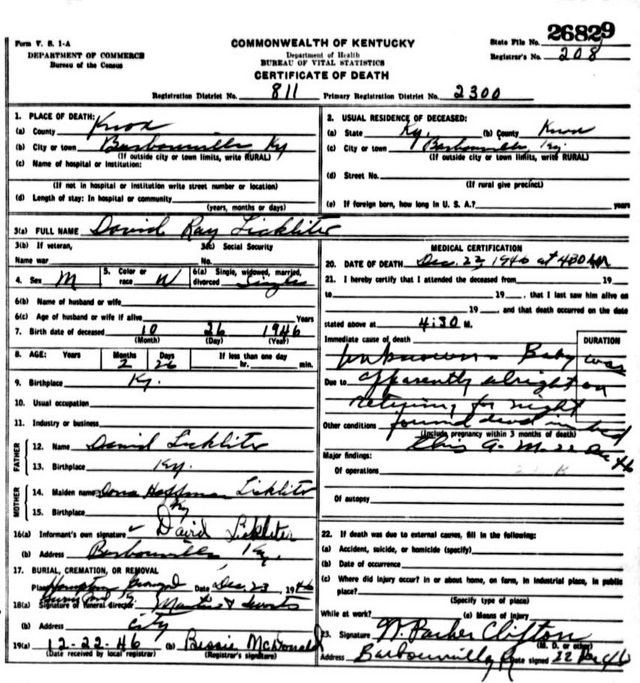 26829
Form V. S. 1-A
DEPARTMENT OF COMMERCE
Bureau of the Census
COMMONWEALTH OF KENTUCKY
Department of Health
BUREAU OF VITAL STATISTICS
CERTIFICATE OF DEATH
State File No.
Registrar's No. 208
Registration District No. 811 Primary Registration District No. 2300
1. PLACE OF DEATH:
(a) County Knox
(b) City or town Barbourville Ky
(If outside city or town limits, write RURAL)
(c) Name of hospital or institution:
(If not in hospital or institution write street number or location)
(d) Length of stay: In hospital or community
(years, months or days)
2. USUAL RESIDENCE OF DECEASED:
(a) State Ky. (b) County Knox
(c) City or town Barbourville, Ky.
(If outside city or town limits, write RURAL)
(d) Street No.
(If rural give precinct)
(e) If foreign born, how long in U. S. A.? years
3(a) FULL NAME David Ray Lickliter
3(b) If veteran, 3(c) Social Security
Name war No.
4. Sex M 5. Color or race W 6(a) Single, widowed, married, divorced Single
6(b) Name of husband or wife
6(c) Age of husband or wife if alive Years
7. Birth date of deceased 10 26 1946
(Month) (Day) (Year)
8. AGE: Years Months Days If less than one day
2 26 hr. min.
9. Birthplace Ky.
10. Usual occupation
11. Industry or business
FATHER
12. Name David Lickliter
13. Birthplace Ky.
MOTHER
14. Maiden name Hoffman Lickliter
15. Birthplace Ky
16(a) Informant's own signature David Lickliter
(b) Address Barbourville Ky.
17. BURIAL, CREMATION, OR REMOVAL
Place Date Dec 23 1946
18(a) Signature of funeral director
(b) Address City
19(a) 12-22-46 (b) Bessie McDonald
(Date received by local registrar) (Registrar's signature)
MEDICAL CERTIFICATION
20. DATE OF DEATH Dec. 22 1946 at 430 AM
21. I hereby certify that I attended the deceased from 19
to 19, that I last saw him alive on
19, and that death occurred on the date
stated above at 4:30 M.
Immediate cause of death DURATION
Unknown - Baby was
Due to apparently alright on
retiring for night
Other conditions found dead in bed
(Include pregnancy within 3 months of death)
this A.M. 22 Dec 46
Major findings:
Of operations
Of autopsy
22. If death was due to external causes, fill in the following:
(a) Accident, suicide, or homicide (specify)
(b) Date of occurrence
(c) Where did injury occur? In or about home, on farm, in industrial place, in public
place?
(Specify type of place)
While at work? (e) Means of injury
23. Signature W. Parker Clifton
(M. D. or other)
Address Barbourville Date signed 22 Dec 46